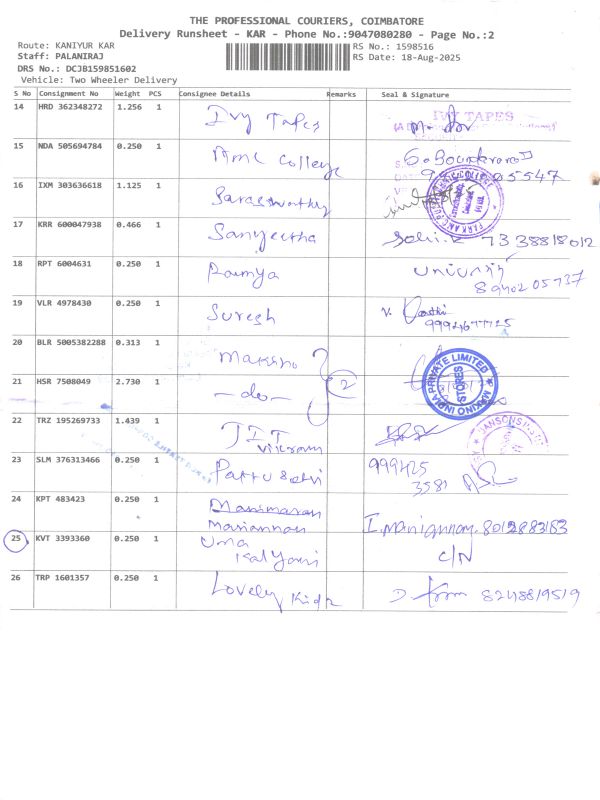 THE PROFESSIONAL COURIERS, COIMBATORE
Delivery Runsheet - KAR - Phone No.:9047080280 - Page No.:2
Route: KANIYUR KAR RS No.: 1598516
Staff: PALANIRAJ RS Date: 18-Aug-2025
DRS No.: DCJB159851602
Vehicle: Two Wheeler Delivery
S No Consignment No Weight PCS Consignee Details Remarks Seal & Signature
14 HRD 362348272 1.256 1 Ivy Tapes IVY TAPES
15 NDA 505694784 0.250 1 AMC College
16 IXM 303636618 1.125 1 Saraswathy
17 KRR 600047938 0.466 1 Sangeetha 7338818012
18 RPT 6004631 0.250 1 Ramya 89402 05737
19 VLR 4978430 0.250 1 Suresh V.
20 BLR 5005382288 0.313 1 Makino MAKINO INDIA PRIVATE LIMITED STORES
21 HSR 7508049 2.730 1 -do- 2
22 TRZ 195269733 1.439 1 JIT
Vikram
23 SLM 376313466 0.250 1 Pattu Selvi 999425
3581
24 KPT 483423 0.250 1 Manimaran
Mariannan 8012883183
25 KVT 3393360 0.250 1 Uma
Kalyani C/N
26 TRP 1601357 0.250 1 Lovely Kids 8248819519